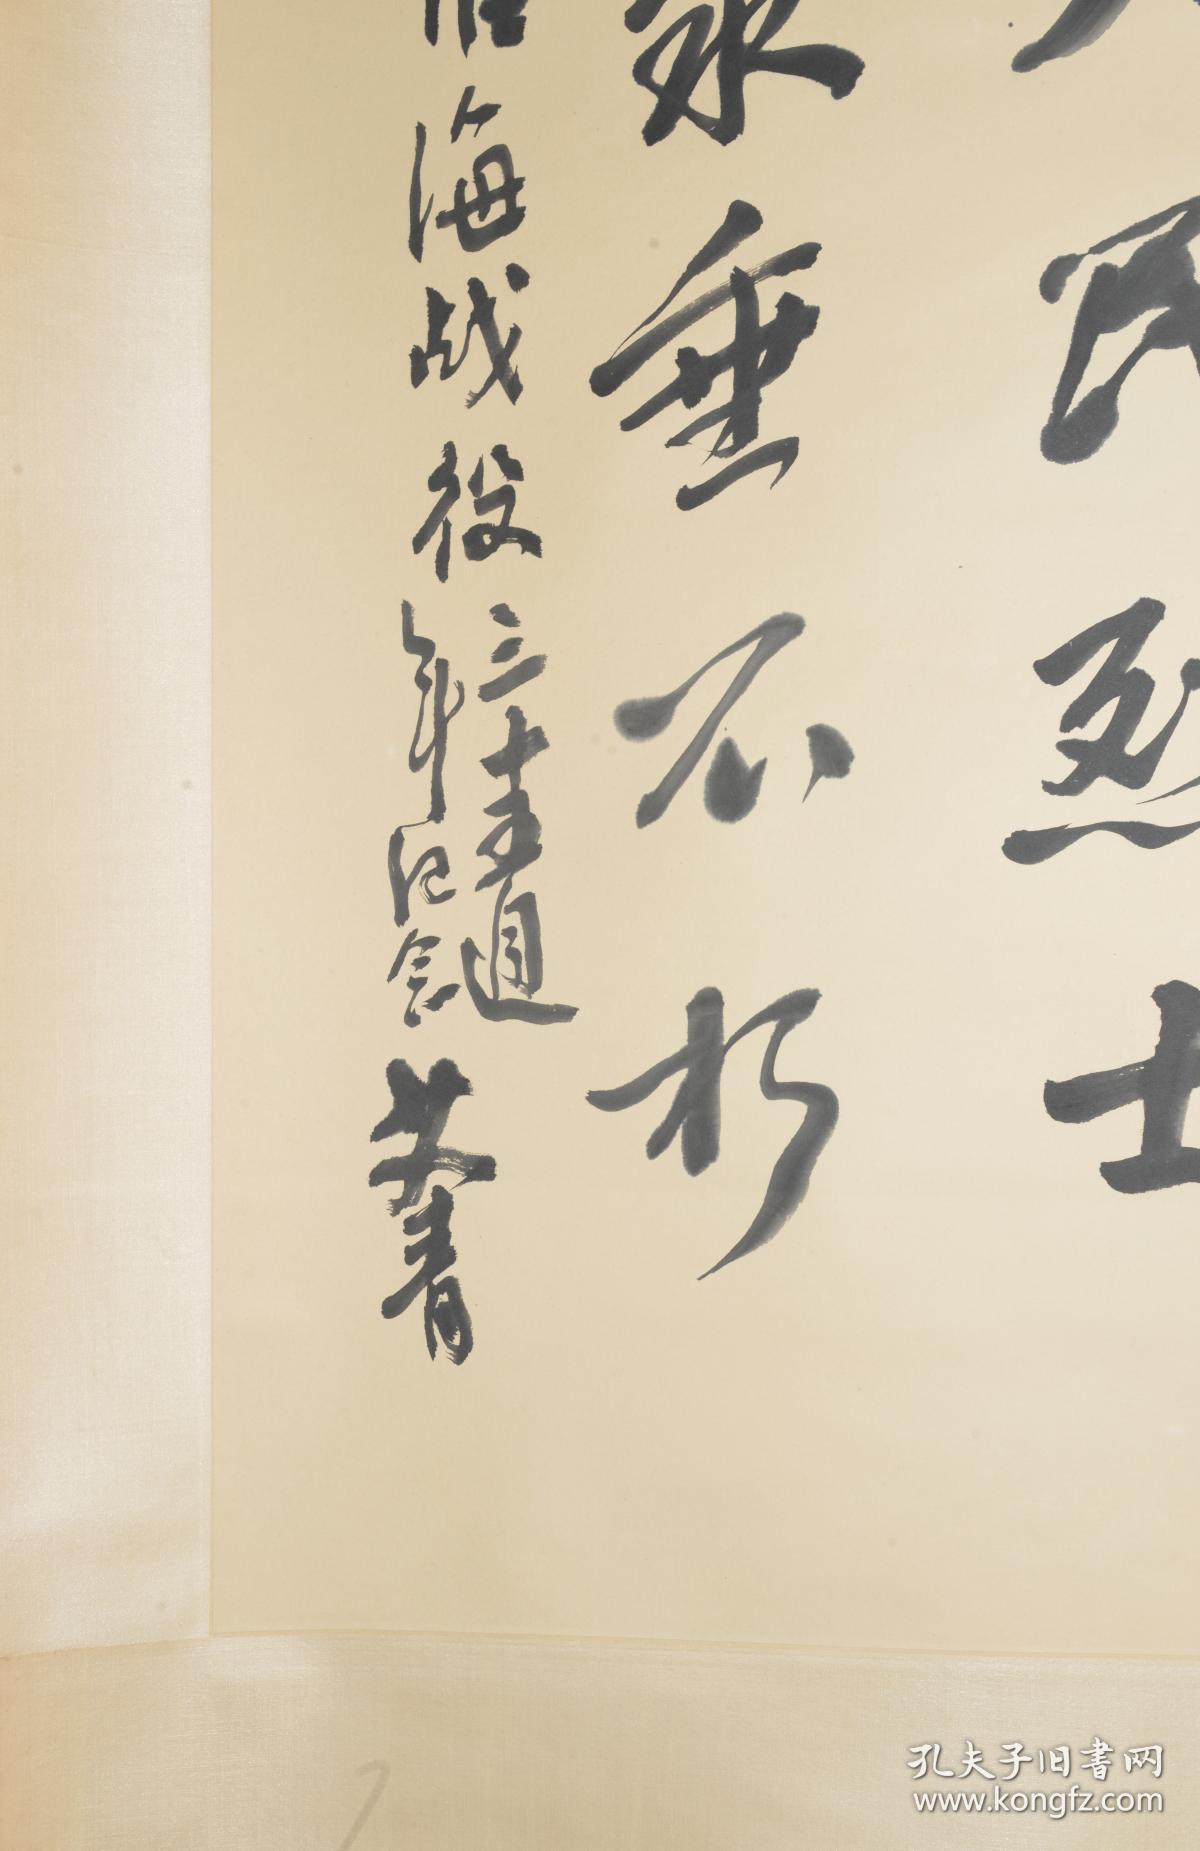 民烈士
永垂不朽
海战役三十五週年纪念
孔夫子旧书网
www.kongfz.com